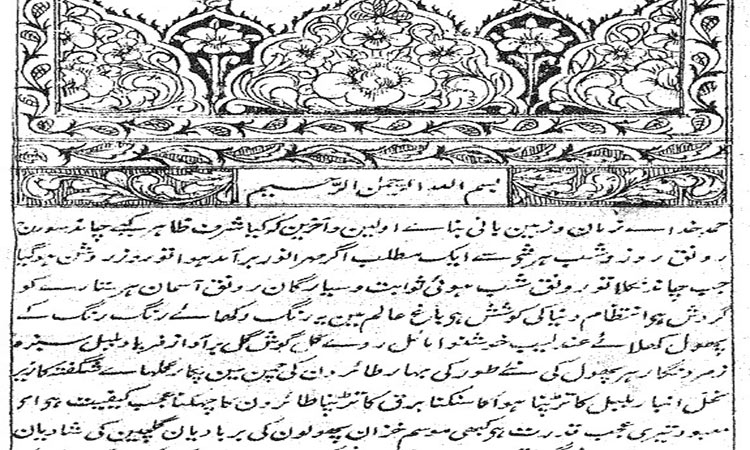 بسم اللہ الرحمٰن الرحیم
حمد خدا سے زمان و زمین بانی بناے اولین و آخرین کو کیا شرف ظاہر کیے چاند سورج
رونق روز و شب ہر شی سے ایک مطلب اگر مہر انور برآمد ہوا تو روز روشن ہو گیا
جب چاند نکلا تو رونق شب ہوئی ثوابت و سیارگان رونق آسمان ہر ستارے کو
گردش ہی انتظام دنیا کی کوشش ہی باغ عالم مین یہ رنگ دکھائے رنگ رنگ کے
پھول کھلائے عندلیب خوشنوا مائل روے گل گوش گل بر آواز فریاد بلبل سبزہ
زمرد نگار ہر پھول کی نئے طور کی بہار طائرون کی چمن مین پکار گلہاے شگفتہ کا زیر
نخل انبار بلبل کا تڑپنا ہوا کا سنکنا برق کا تڑپنا طائرون کا چہکنا عجب کیفیت ہوا ہی
معبود تیری عجب قدرت ہی کبھی موسم خزان پھولون کی بربادیان گلچین کی شادیان